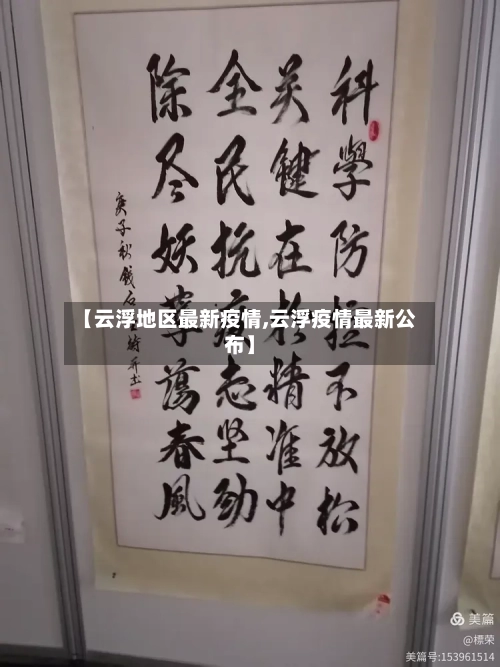 科學防控不放松
关鍵在於精准中
全民抗疫志坚劲
除尽妖孽蕩春風
庚子秋
【云浮地区最新疫情,云浮疫情最新公
布】
美篇
@標荣
美篇号:153961514